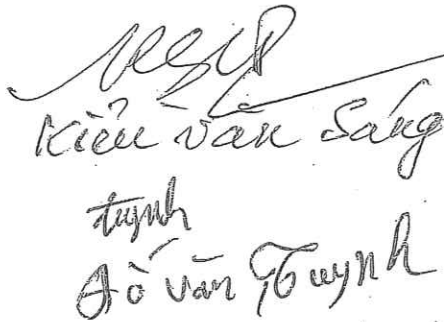 Kiều Văn Sáng
tuynh
Đỗ Văn Tuynh